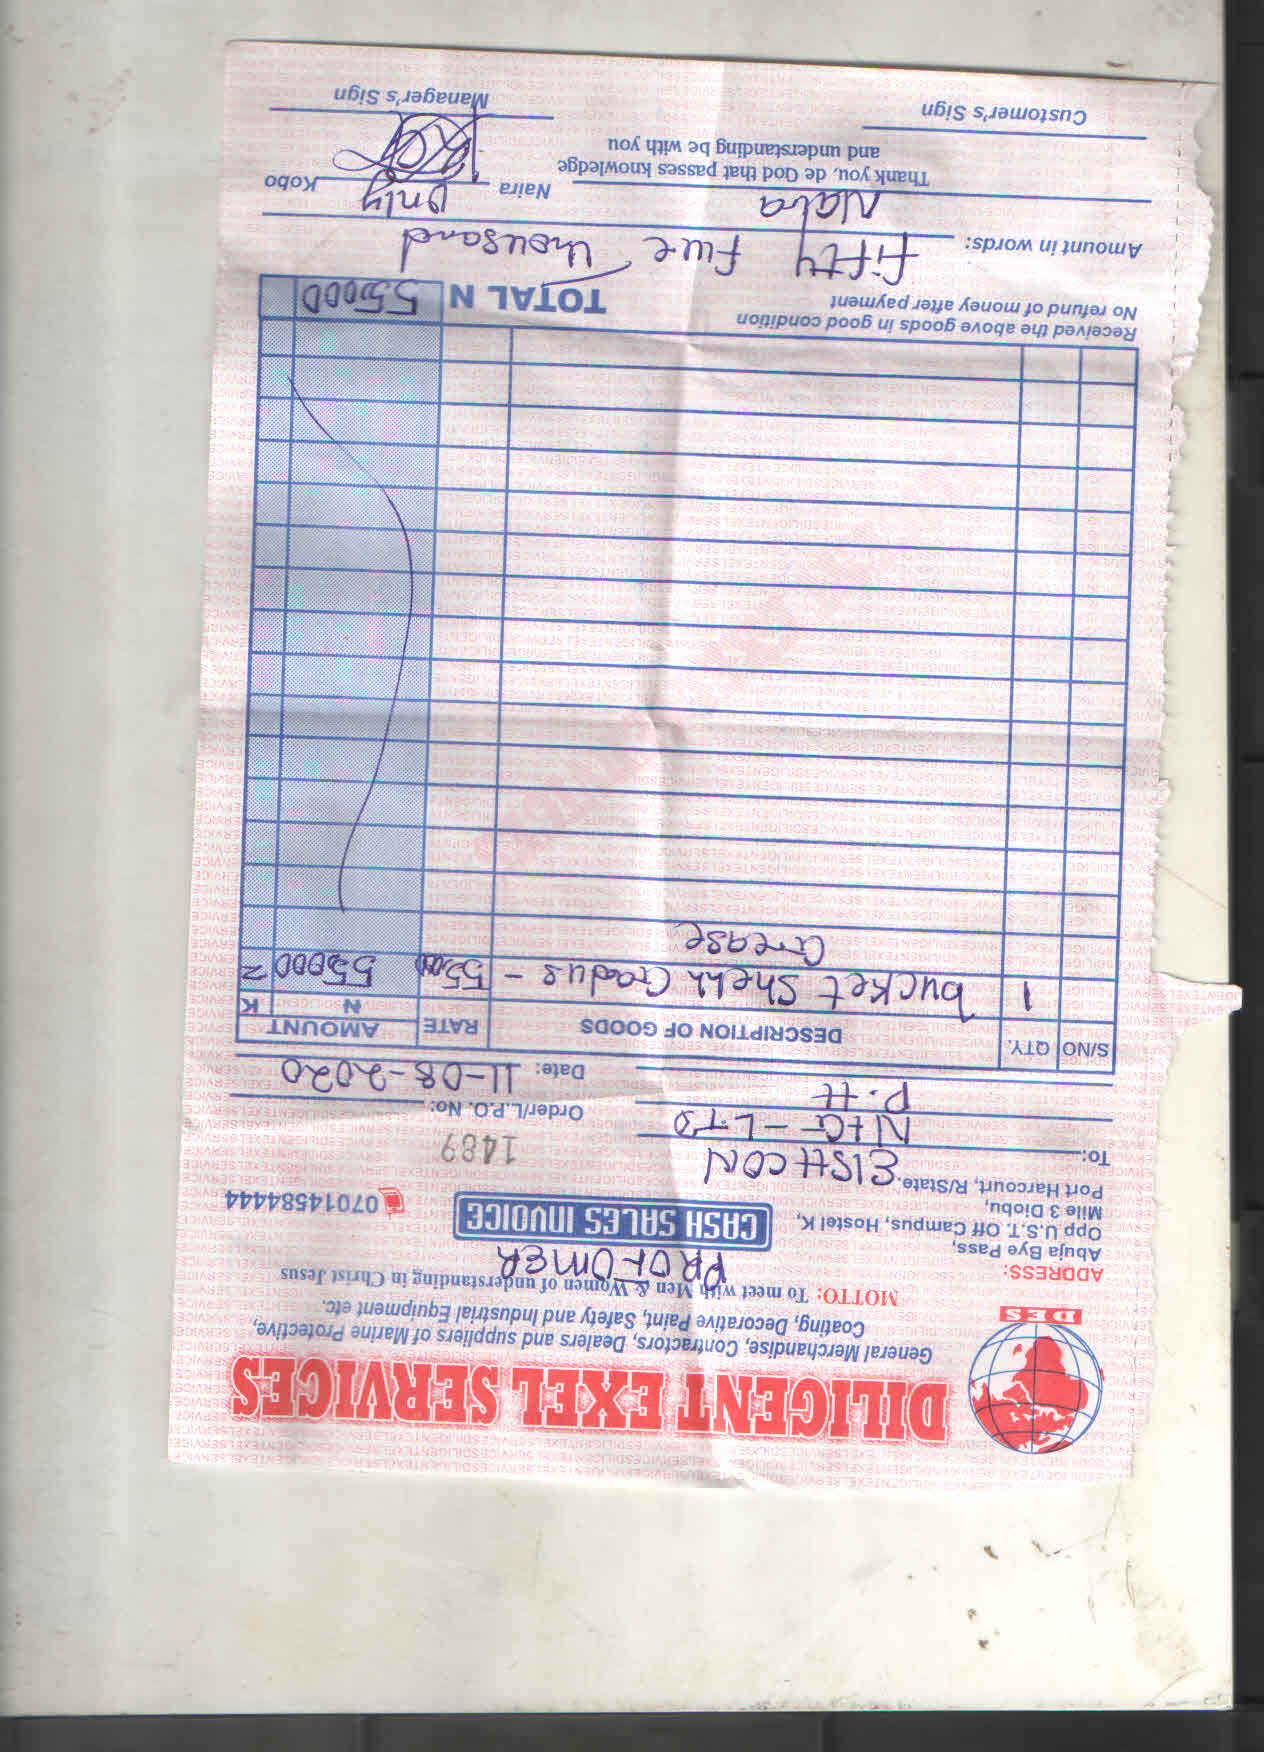 DILIGENT EXEL SERVICES
DES
General Merchandise, Contractors, Dealers and suppliers of Marine Protective,
Coating, Decorative Paint, Safety and Industrial Equipment etc.
MOTTO: To meet with Men & Women of understanding in Christ Jesus
PROFOMER
CASH SALES INVOICE
07014584444
ADDRESS:
Abuja Bye Pass,
Opp U.S.T. Off Campus, Hostel K,
Mile 3 Diobu,
Port Harcourt, R/State.
To: EISHCON
NIG-LTD
P.H
1489
Order/L.P.O. No:
Date: 11-08-2020
S/NO QTY. DESCRIPTION OF GOODS RATE AMOUNT
N K
1 bucket Shell Gadus - 55,000 55,000
Grease
Received the above goods in good condition
No refund of money after payment
TOTAL N 55,000
Amount in words: fifty five Thousand
Naira Naira Only Kobo
Thank you, de God that passes knowledge
and understanding be with you
Customer's Sign
Manager's Sign